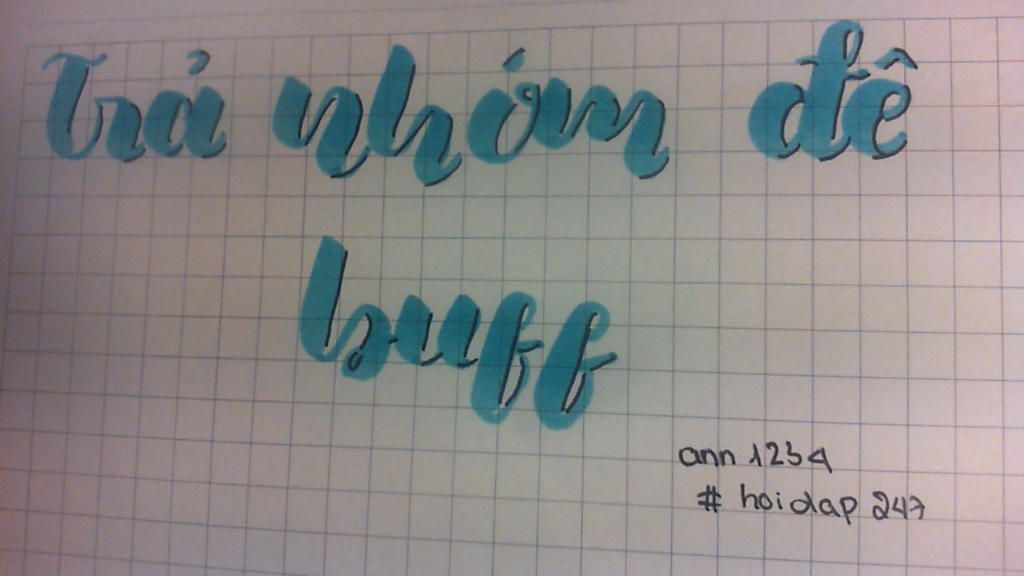 Trả nhóm đê
buff
ann 1234
# hoidap 247